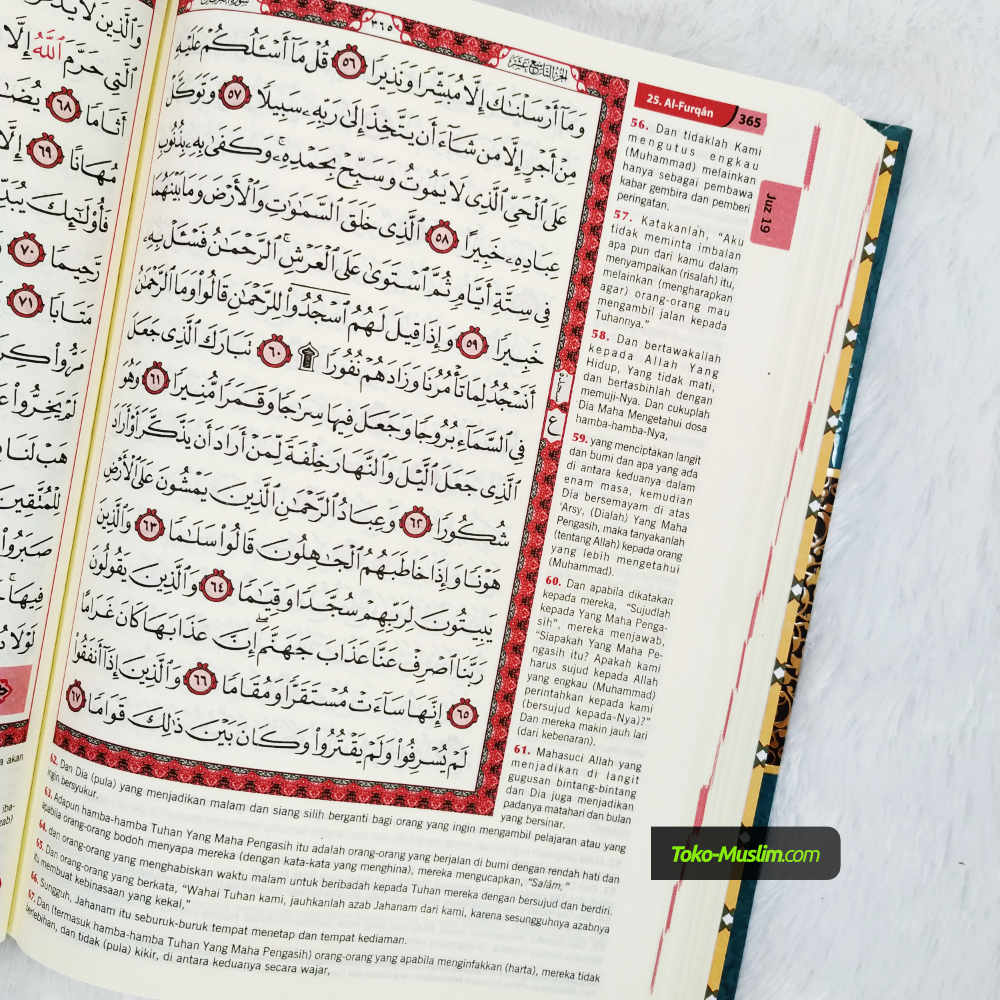 ٣٦٥
الجزء التاسع عشر
وَمَآ أَرْسَلْنَٰكَ إِلَّا مُبَشِّرًا وَنَذِيرًا ٥٦ قُلْ مَآ أَسْـَٔلُكُمْ عَلَيْهِ
مِنْ أَجْرٍ إِلَّا مَن شَآءَ أَن يَتَّخِذَ إِلَىٰ رَبِّهِۦ سَبِيلًا ٥٧ وَتَوَكَّلْ
عَلَى ٱلْحَىِّ ٱلَّذِى لَا يَمُوتُ وَسَبِّحْ بِحَمْدِهِۦ ۚ وَكَفَىٰ بِهِۦ بِذُنُوبِ
عِبَادِهِۦ خَبِيرًا ٥٨ ٱلَّذِى خَلَقَ ٱلسَّمَٰوَٰتِ وَٱلْأَرْضَ وَمَا بَيْنَهُمَا
فِى سِتَّةِ أَيَّامٍ ثُمَّ ٱسْتَوَىٰ عَلَى ٱلْعَرْشِ ۚ ٱلرَّحْمَٰنُ فَسْـَٔلْ بِهِۦ
خَبِيرًا ٥٩ وَإِذَا قِيلَ لَهُمُ ٱسْجُدُوا۟ لِلرَّحْمَٰنِ قَالُوا۟ وَمَا ٱلرَّحْمَٰنُ
أَنَسْجُدُ لِمَا تَأْمُرُنَا وَزَادَهُمْ نُفُورًا ۩ ٦٠ تَبَارَكَ ٱلَّذِى جَعَلَ
فِى ٱلسَّمَآءِ بُرُوجًا وَجَعَلَ فِيهَا سِرَٰجًا وَقَمَرًا مُّنِيرًا ٦١ وَهُوَ
ٱلَّذِى جَعَلَ ٱلَّيْلَ وَٱلنَّهَارَ خِلْفَةً لِّمَنْ أَرَادَ أَن يَذَّكَّرَ أَوْ أَرَادَ
شُكُورًا ٦٢ وَعِبَادُ ٱلرَّحْمَٰنِ ٱلَّذِينَ يَمْشُونَ عَلَى ٱلْأَرْضِ
هَوْنًا وَإِذَا خَاطَبَهُمُ ٱلْجَٰهِلُونَ قَالُوا۟ سَلَٰمًا ٦٣ وَٱلَّذِينَ
يَبِيتُونَ لِرَبِّهِمْ سُجَّدًا وَقِيَٰمًا ٦٤ وَٱلَّذِينَ يَقُولُونَ
رَبَّنَا ٱصْرِفْ عَنَّا عَذَابَ جَهَنَّمَ ۖ إِنَّ عَذَابَهَا كَانَ غَرَامًا
٦٥ إِنَّهَا سَآءَتْ مُسْتَقَرًّا وَمُقَامًا ٦٦ وَٱلَّذِينَ إِذَآ أَنفَقُوا۟
لَمْ يُسْرِفُوا۟ وَلَمْ يَقْتُرُوا۟ وَكَانَ بَيْنَ ذَٰلِكَ قَوَامًا ٦٧
25. Al-Furqān 365
Juz 19
56. Dan tidaklah Kami
mengutus engkau
(Muhammad) melainkan
hanya sebagai pembawa
kabar gembira dan pemberi
peringatan.
57. Katakanlah, “Aku
tidak meminta imbalan
apa pun dari kamu dalam
menyampaikan (risalah) itu,
melainkan (mengharapkan
agar) orang-orang mau
mengambil jalan kepada
Tuhannya.”
58. Dan bertawakallah
kepada Allah Yang
Hidup, Yang tidak mati,
dan bertasbihlah dengan
memuji-Nya. Dan cukuplah
Dia Maha Mengetahui dosa
hamba-hamba-Nya,
59. yang menciptakan langit
dan bumi dan apa yang ada
di antara keduanya dalam
enam masa, kemudian
Dia bersemayam di atas
‘Arsy, (Dialah) Yang Maha
Pengasih, maka tanyakanlah
(tentang Allah) kepada orang
yang lebih mengetahui
(Muhammad).
60. Dan apabila dikatakan
kepada mereka, “Sujudlah
kepada Yang Maha Penga-
sih”, mereka menjawab,
“Siapakah Yang Maha Pe-
ngasih itu? Apakah kami
harus sujud kepada Allah
yang engkau (Muhammad)
perintahkan kepada kami
(bersujud kepada-Nya)?”
Dan mereka makin jauh lari
(dari kebenaran).
61. Mahasuci Allah yang
menjadikan di langit
gugusan bintang-bintang
dan Dia juga menjadikan
padanya matahari dan bulan
yang bersinar.
62. Dan Dia (pula) yang menjadikan malam dan siang silih berganti bagi orang yang ingin mengambil pelajaran atau yang
ingin bersyukur.
63. Adapun hamba-hamba Tuhan Yang Maha Pengasih itu adalah orang-orang yang berjalan di bumi dengan rendah hati dan
apabila orang-orang bodoh menyapa mereka (dengan kata-kata yang menghina), mereka mengucapkan, “Salām,”
64. dan orang-orang yang menghabiskan waktu malam untuk beribadah kepada Tuhan mereka dengan bersujud dan berdiri.
65. Dan orang-orang yang berkata, “Wahai Tuhan kami, jauhkanlah azab Jahanam dari kami, karena sesungguhnya azabnya
itu membuat kebinasaan yang kekal.”
66. Sungguh, Jahanam itu seburuk-buruk tempat menetap dan tempat kediaman.
67. Dan (termasuk hamba-hamba Tuhan Yang Maha Pengasih) orang-orang yang apabila menginfakkan (harta), mereka tidak
berlebihan, dan tidak (pula) kikir, di antara keduanya secara wajar,
Toko-Muslim.com